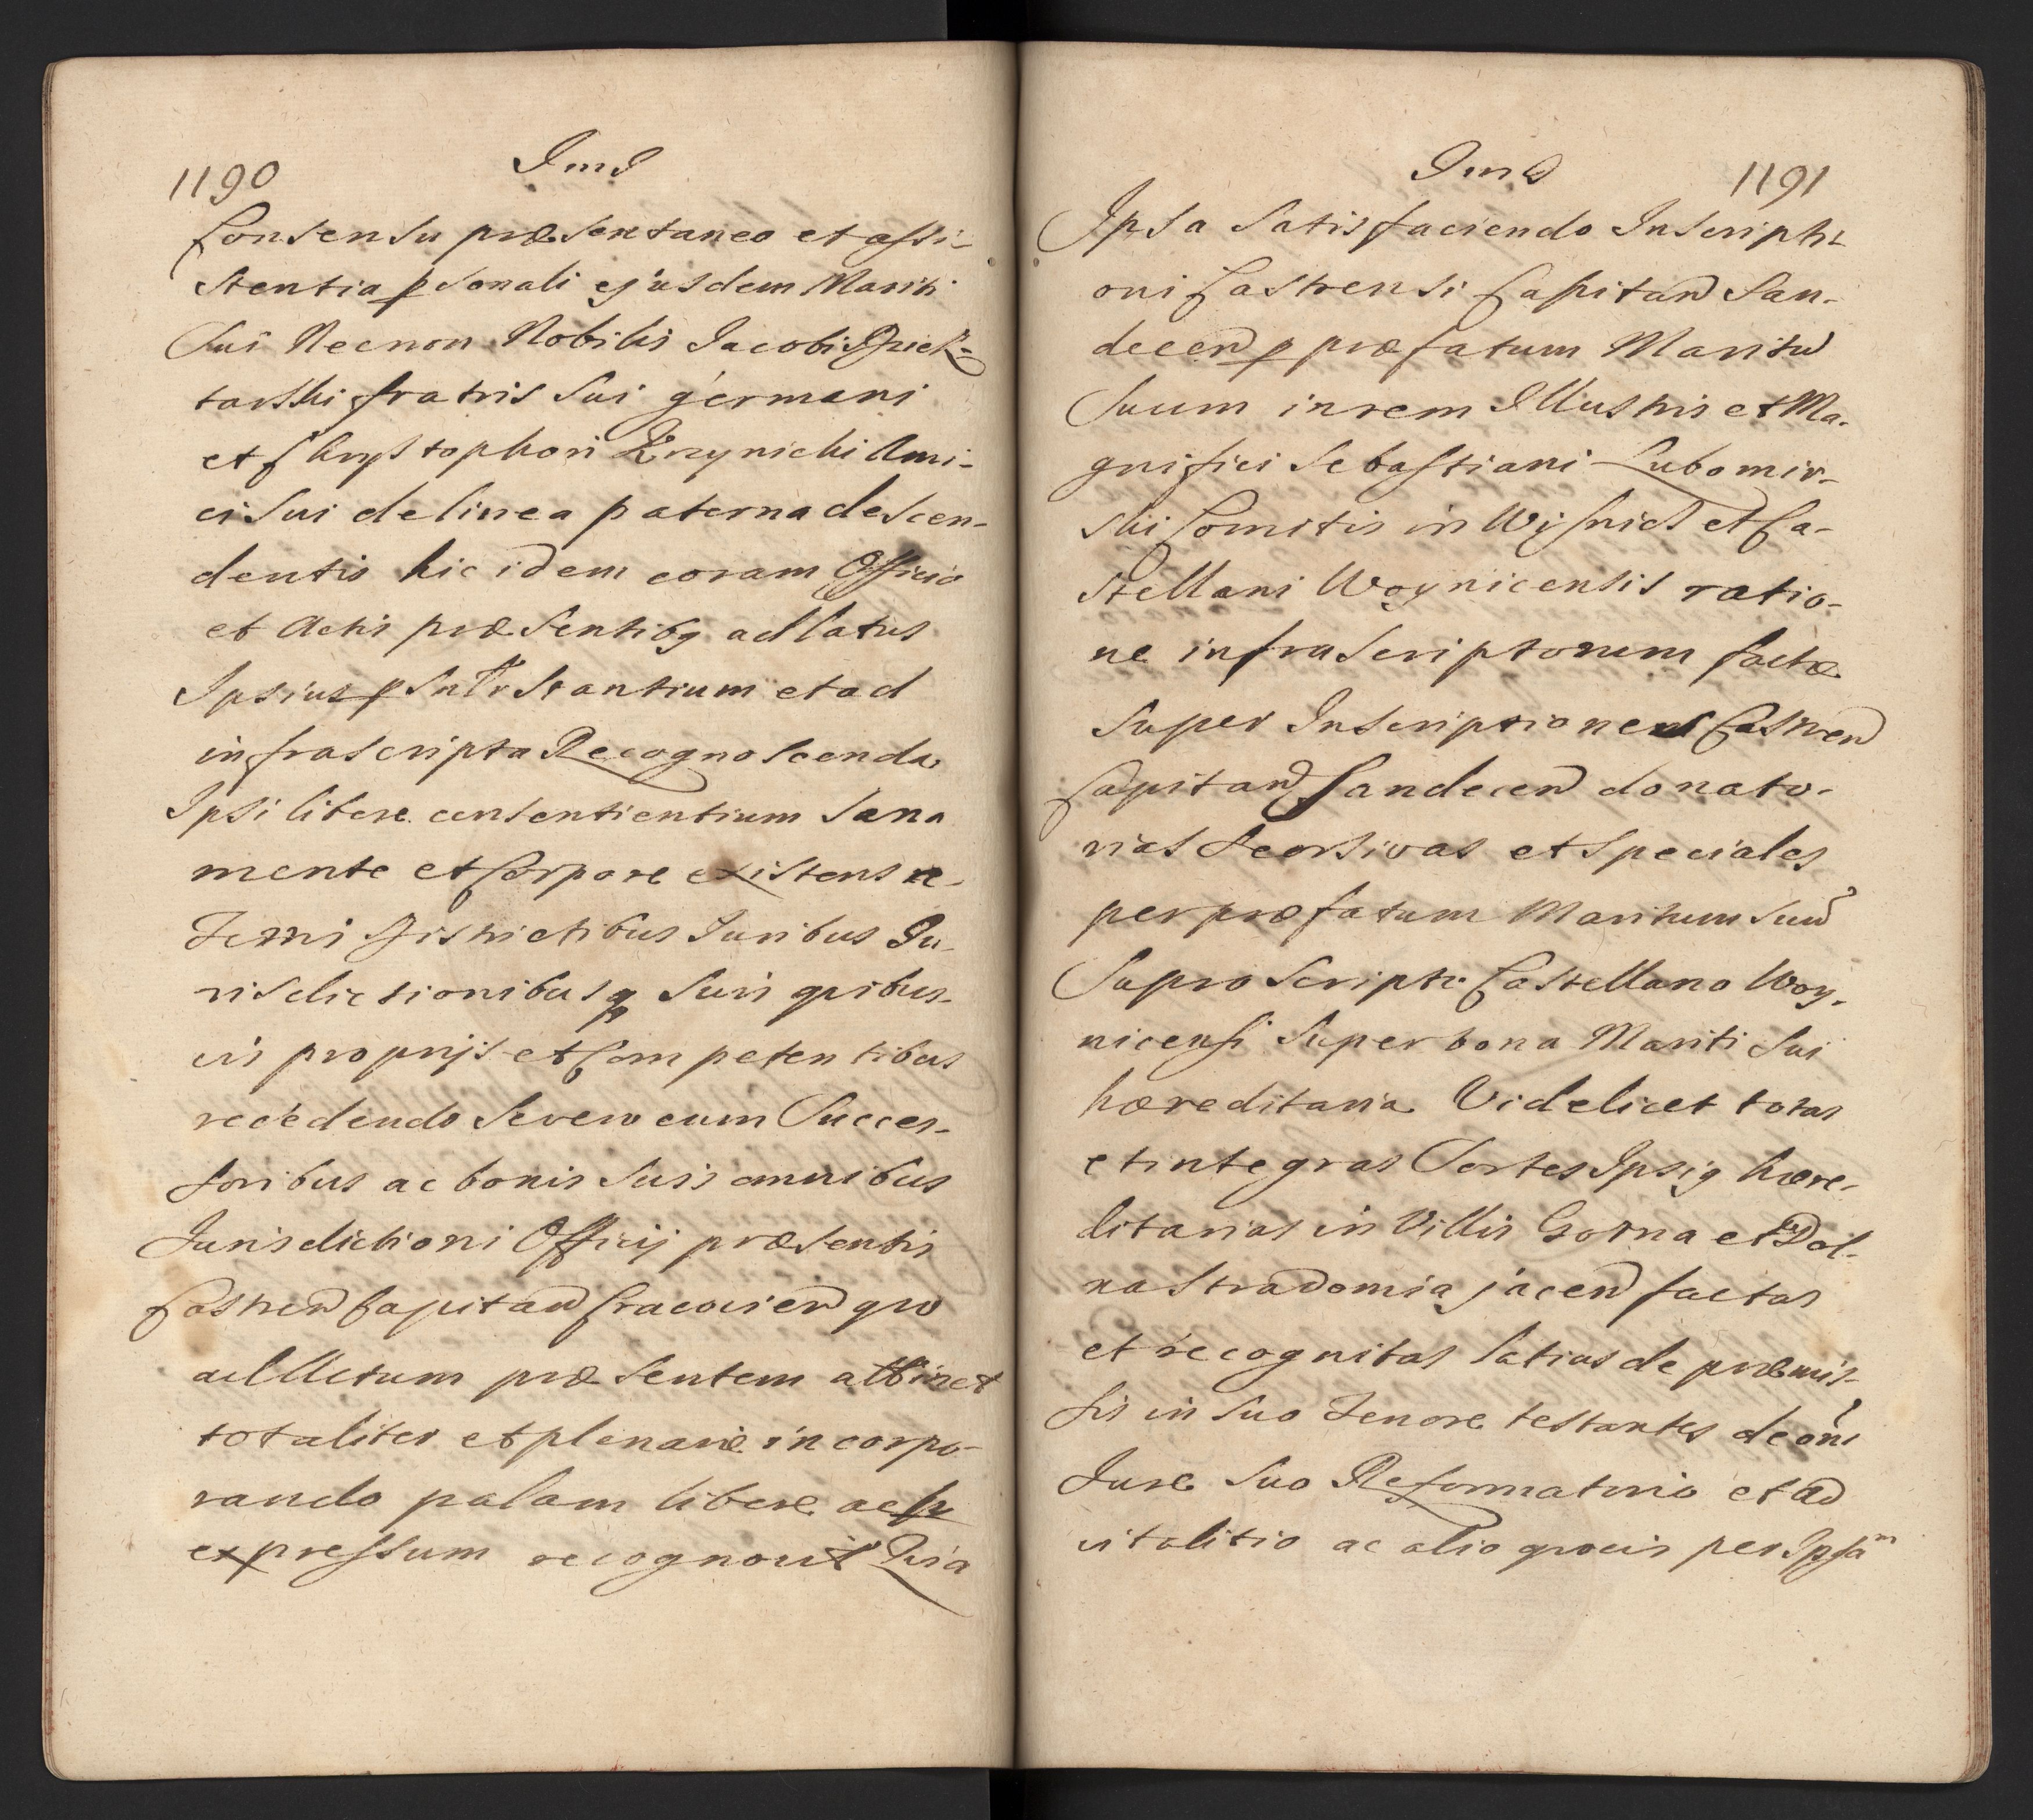 1190
Consensu præsentaneo et assi-
stentia psonali ejusdem Mariti
Sui Necnon Nobilis Jacobi
tarski fratris Sui germani
et Chrystophori Ami-
ci Sui de linea paterna descen-
dentis hic idem coram Officio
et Actis præsentibq ad latus
Ipsius Stantium et ad
infrascripta Recognoscenda
Ipsi libere consentientium Sana
mente et Corpore existens re-
Terris Districtibus Juribus Ju-
risdictionibusq Suis quibus-
vis proprijs et Competentibus
recedendo Se vero cum Succes-
soribus ac bonis Suis omnibus
Jurisdictioni Officij præsentis
Castren Capitan Cracovien quo
ad Actum præsentem attinet
totaliter et plenarie incorpo-
rando palam libere ac p
expressum recognovit Quia
1191
Ipsa Satisfaciendo Inscripti
oni Castrensi Capitan San-
decen p præfatum Maritu
Suum in rem Illustris et Ma-
gnifici Sebastiani Lubomir-
ski Comitis in Wisnicz et Ca-
stellani Woynicensis ratio-
ne infrascriptorum factæ
Super Inscriptiones Castren
Capitan Sandecen donato-
rias Seorsivas et Speciales
per præfatum Maritum Suu
Suprascripto Castellano Woy-
nicensi Super bona Mariti Sui
hæreditaria Videlicet totas
et integras Sortes Ipsiq hære-
ditarias in Villis Gorna et Dol-
na Stradomia jacen factas
et recognitas latius de præmis-
sis in Suo Tenore testantes de oni
Jure Suo Reformatorio et ad
vitalitio ac alio quovis per Ipsam